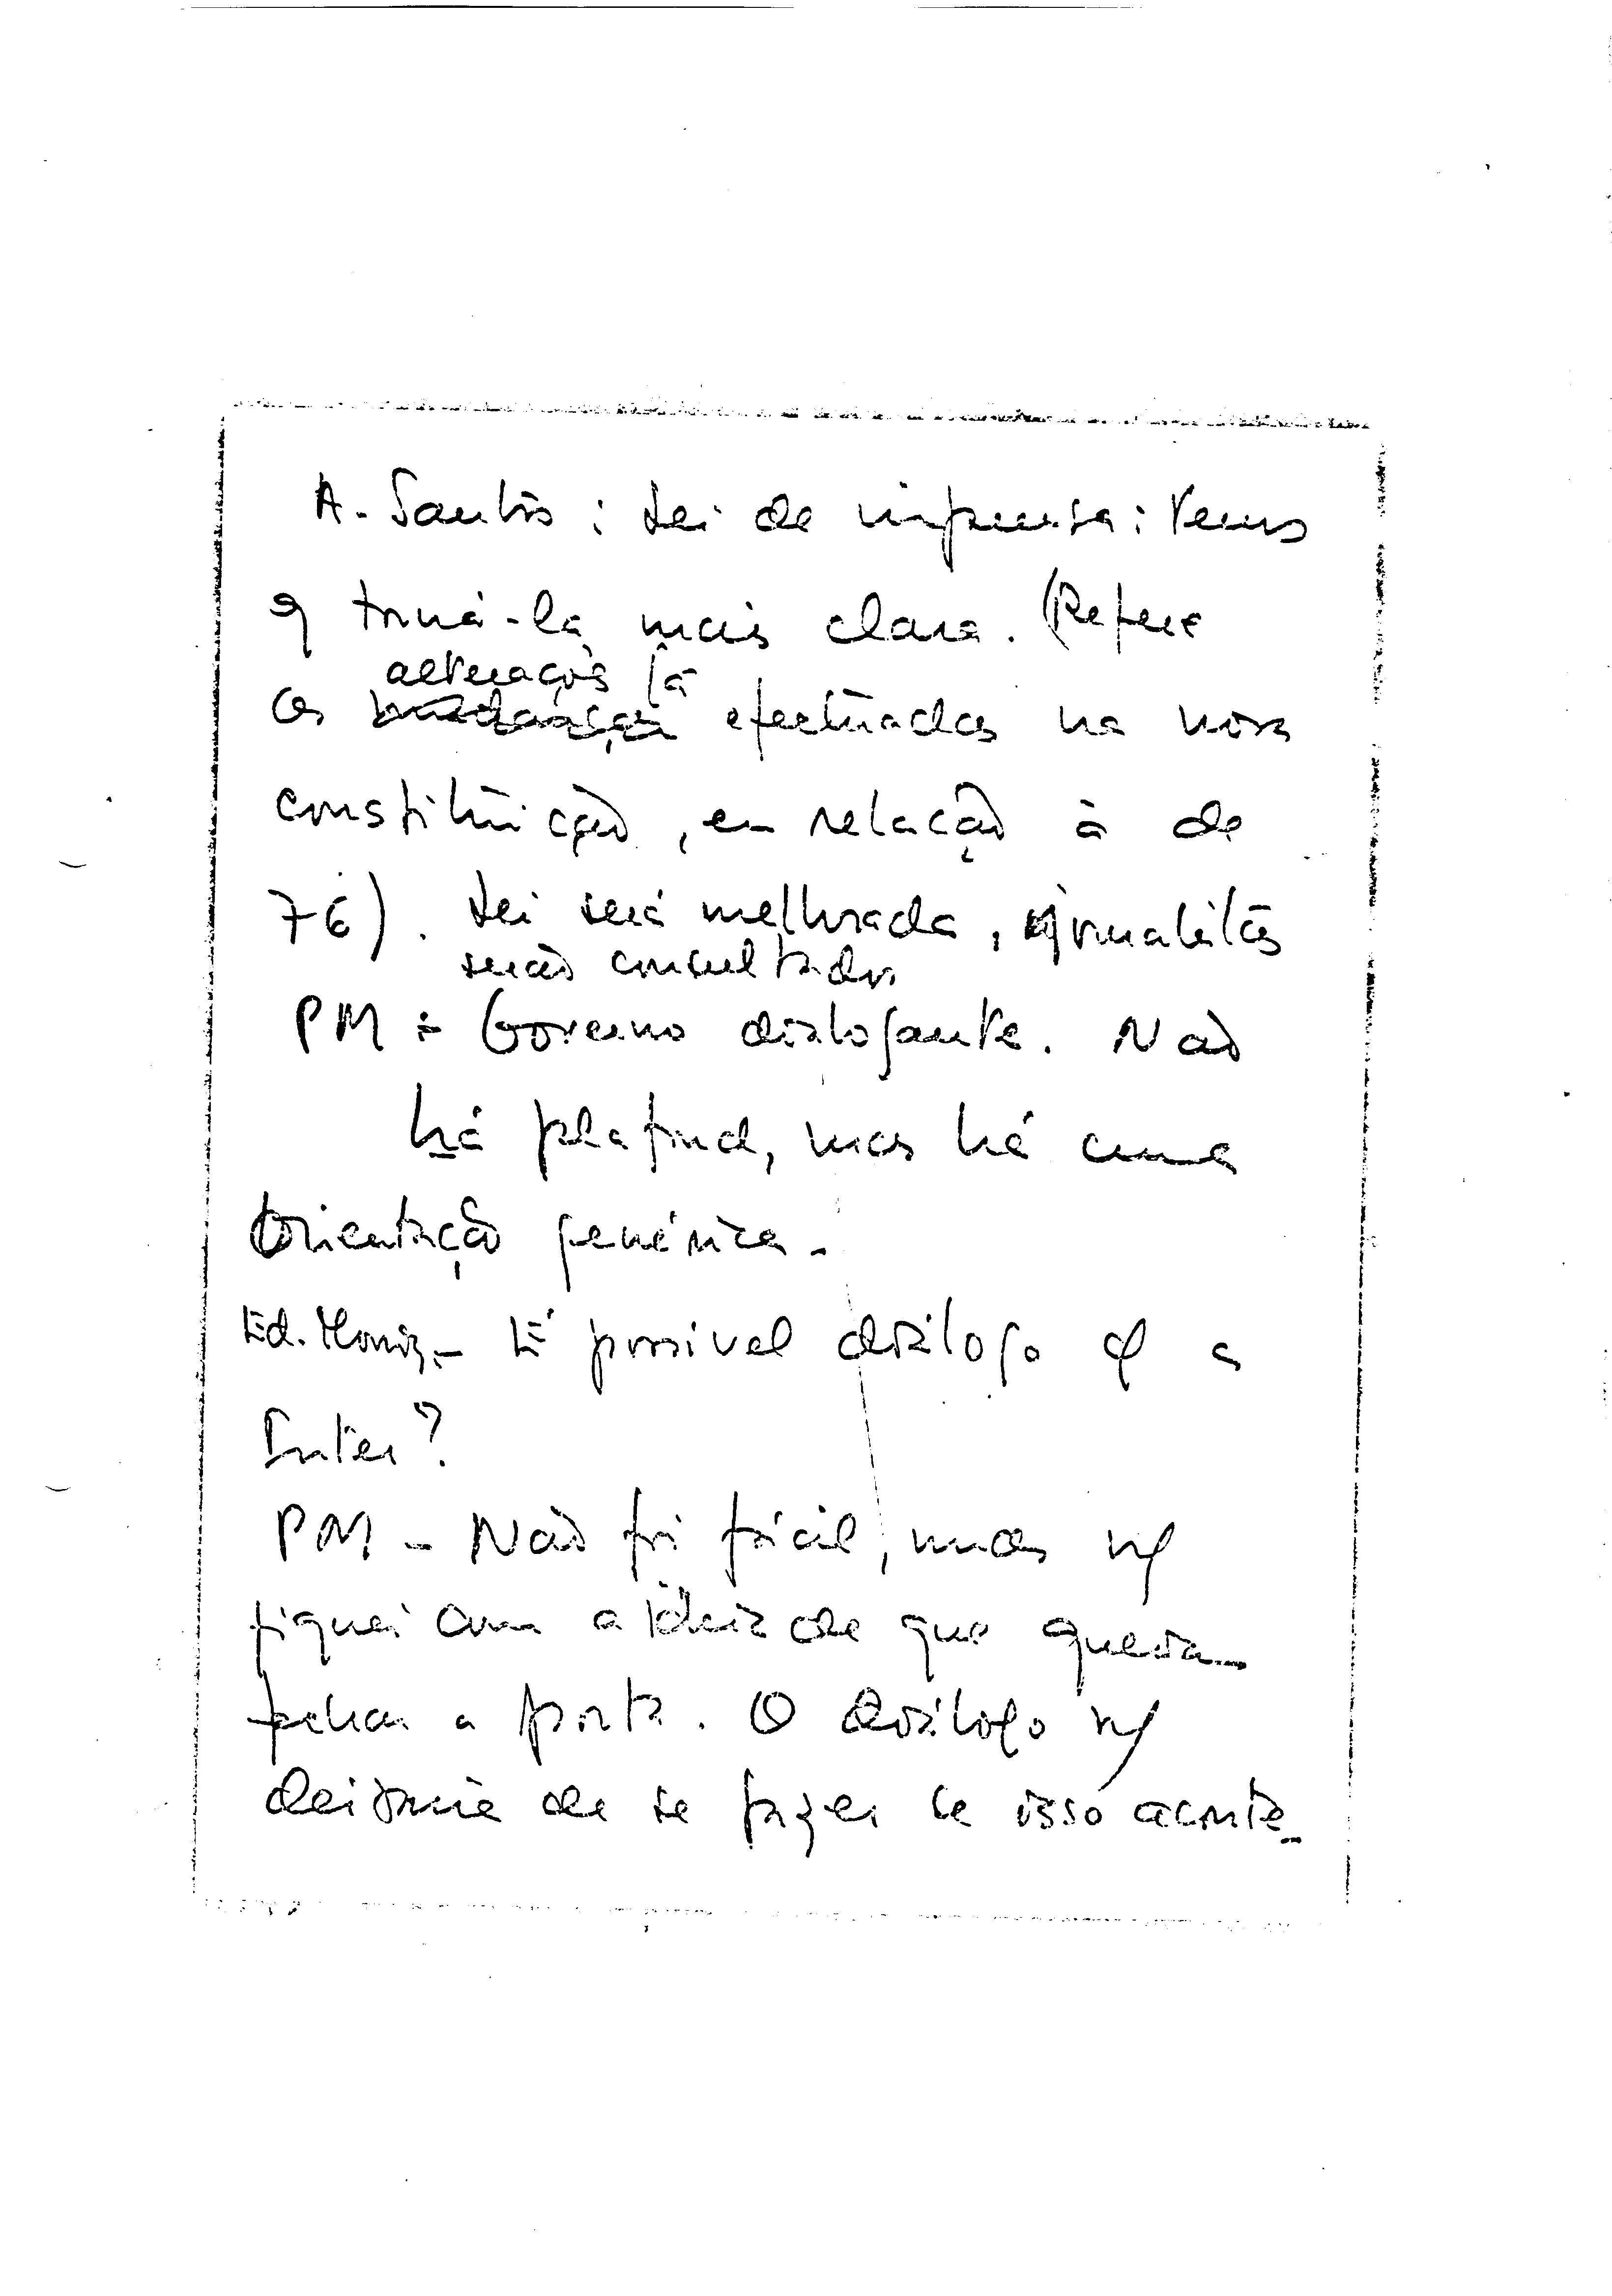 A. Santos : Lei de imprensa : temos
q torná-la mais clara. (Refere
alterações já
as mudanças efectuadas na nova
constituição, em relação à de
76). Lei será melhorada, jornalistas
serão consultados
PM : Governo dialogante. Não
há plafond, mas há uma
orientação genérica.
Ed. Moniz - É possível diálogo c/ a
Inter?
PM - Não foi fácil, mas n/
fiquei com a ideia de que queiram
fechar a porta. O diálogo n/
deixaria de se fazer se isso aconte-